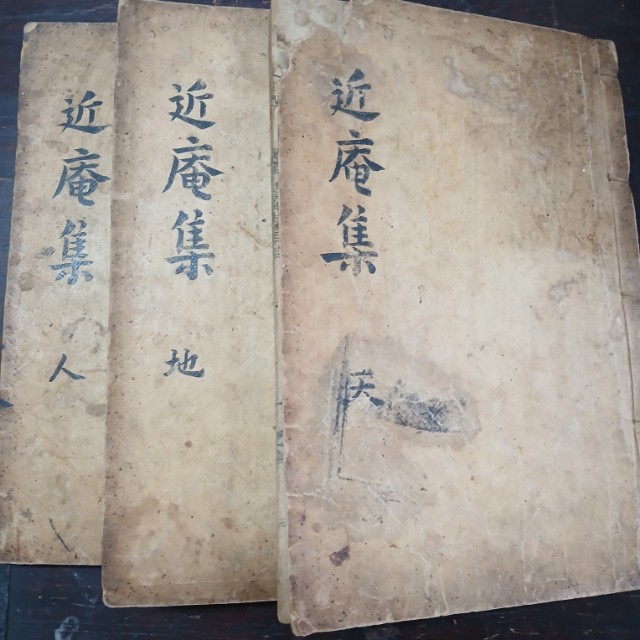 近庵集
天
近庵集
地
近庵集
人